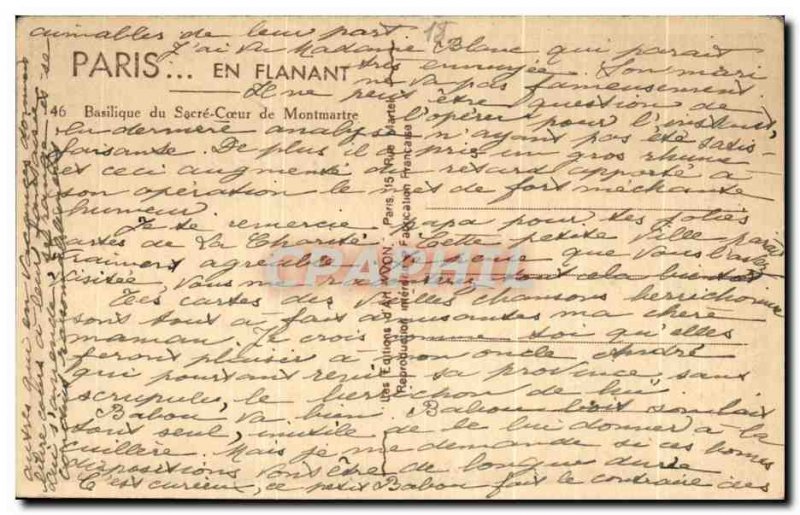 18
aimables de leur part.
J'ai vu Madame Blanc qui parait
PARIS... EN FLANANT
très ennuyée. Son mari
ne va pas fameusement.
Il ne peut être question de
46 Basilique du Sacré-Cœur de Montmartre
l'opérer pour l'instant,
la dernière analyse n'ayant pas été satis-
faisante. De plus il a pris un gros rhume
et ceci augmente du retard apporté à
son opération le met de fort méchante
humeur.
Je te remercie Papa pour tes jolies
cartes de La Charité. Cette petite ville parait
vraiment agréable que vous l'avez
visitée, vous me cela bientôt
Les cartes des vieilles chansons berrichonnes
sont tout à fait amusantes ma chère
maman. Je crois comme toi qu'elles
feront plaisir à mon oncle André
qui pourtant renie sa province sans
scrupule, le berrichon de lui.
Babou va bien. Babou boit son lait
tout seul, inutile de le lui donner à la
cuillère. Mais je me demande si ces bonnes
dispositions vont être de longue durée
C'est curieux, ce petit Babou fait le contraire des
autres qui en vacances
libre cours à leur fantaisie et se
Les Éditions d'Art YVON, Paris, 15, Rue Martel
Reproduction interdite Fabrication Française
CPAPHIL